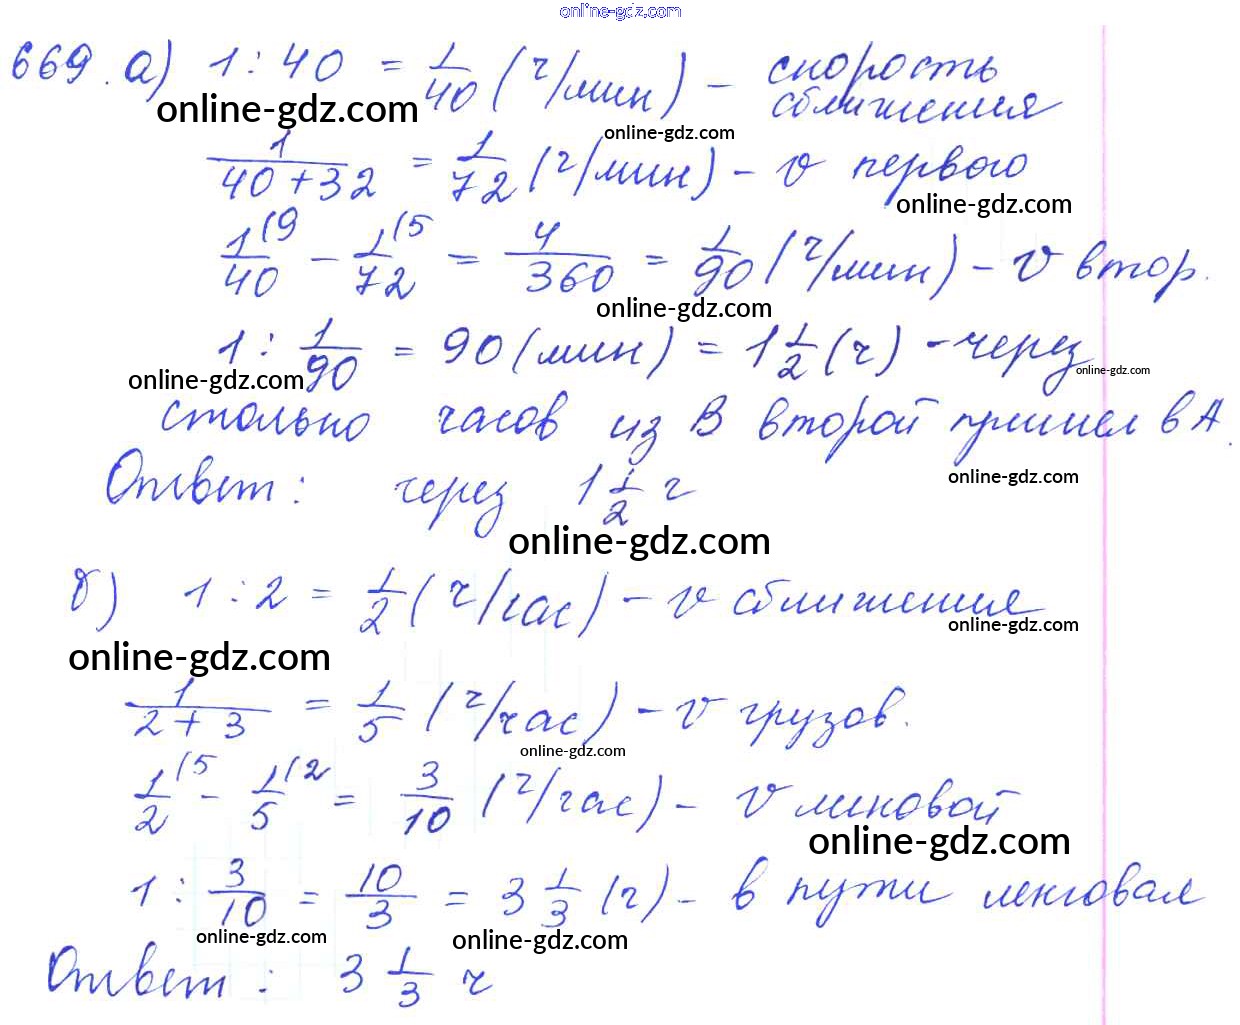 online-gdz.com
669. а) 1 : 40 = 1/40 (ч/мин) - скорость сближения
online-gdz.com
online-gdz.com
1/(40 + 32) = 1/72 (ч/мин) - v первого
online-gdz.com
1/40 (9 - 1/72 (5 = 4/360 = 1/90 (ч/мин) - v втор.
online-gdz.com
1 : 1/90 = 90 (мин) = 1 1/2 (ч) - через
online-gdz.com
online-gdz.com
столько часов из В второй пришел в А.
online-gdz.com
Ответ: через 1 1/2 ч
online-gdz.com
б) 1 : 2 = 1/2 (ч/час) - v сближения
online-gdz.com
online-gdz.com
1/(2 + 3) = 1/5 (ч/час) - v грузов.
online-gdz.com
1/2 (5 - 1/5 (2 = 3/10 (ч/час) - v легковой
online-gdz.com
1 : 3/10 = 10/3 = 3 1/3 (ч) - в пути легковая
online-gdz.com
online-gdz.com
Ответ: 3 1/3 ч